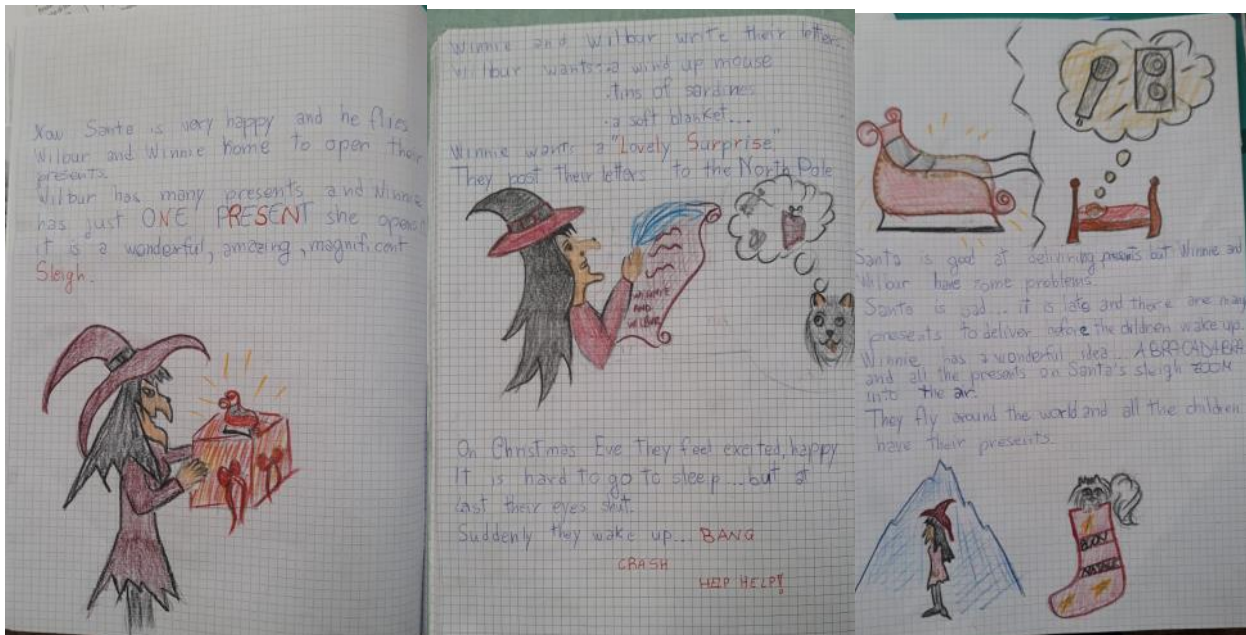 Now Santa is very happy and he flies
Wilbur and Winnie home to open their
presents.
Wilbur has many presents and Winnie
has just ONE PRESENT she opens
it is a wonderful, amazing, magnificent
Sleigh.
Winnie and Wilbur write their letter...
Wilbur wants: a wind up mouse
.tins of sardines
.a soft blanket...
Winnie wants a "Lovely Surprise"
They post their letters to the North Pole
WINNIE
AND
WILBUR
On Christmas Eve they feel excited, happy
It is hard to go to sleep...but at
last their eyes shut.
Suddenly they wake up... BANG
CRASH
HELP HELP!
Santa is good at delivering presents but Winnie and
Wilbur have some problems.
Santa is sad... it is late and there are many
presents to deliver before the children wake up.
Winnie has a wonderful idea... ABRACADABRA
and all the presents on Santa's sleigh ZOOM
into the air.
They fly around the world and all the children
have their presents.
BUON
NATALE